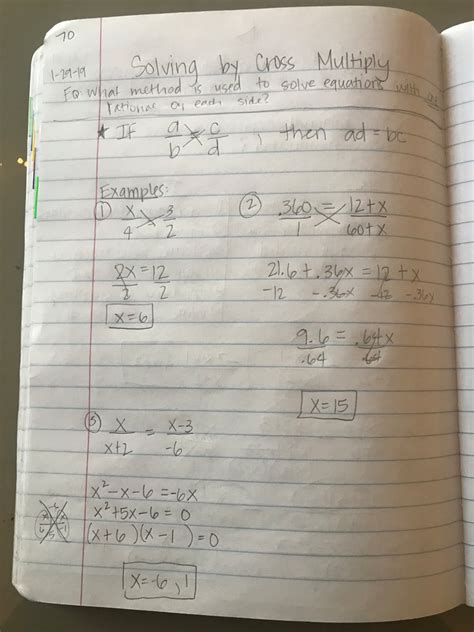 70
1-29-19 Solving by Cross Multiply
EQ What method is used to solve equations with
rational on each side?
* IF a/b = c/d, then ad = bc
Examples:
① x/4 = 3/2
2x = 12
2 2
x = 6
② .360/1 = 12+x/60+x
21.6 + .36x = 12 + x
-12 -.36x -12 -.36x
9.6 = .64x
.64 .64
x = 15
③ x/x+2 = x-3/-6
x² - x - 6 = -6x
x² + 5x - 6 = 0
(x+6)(x-1) = 0
x = -6, 1